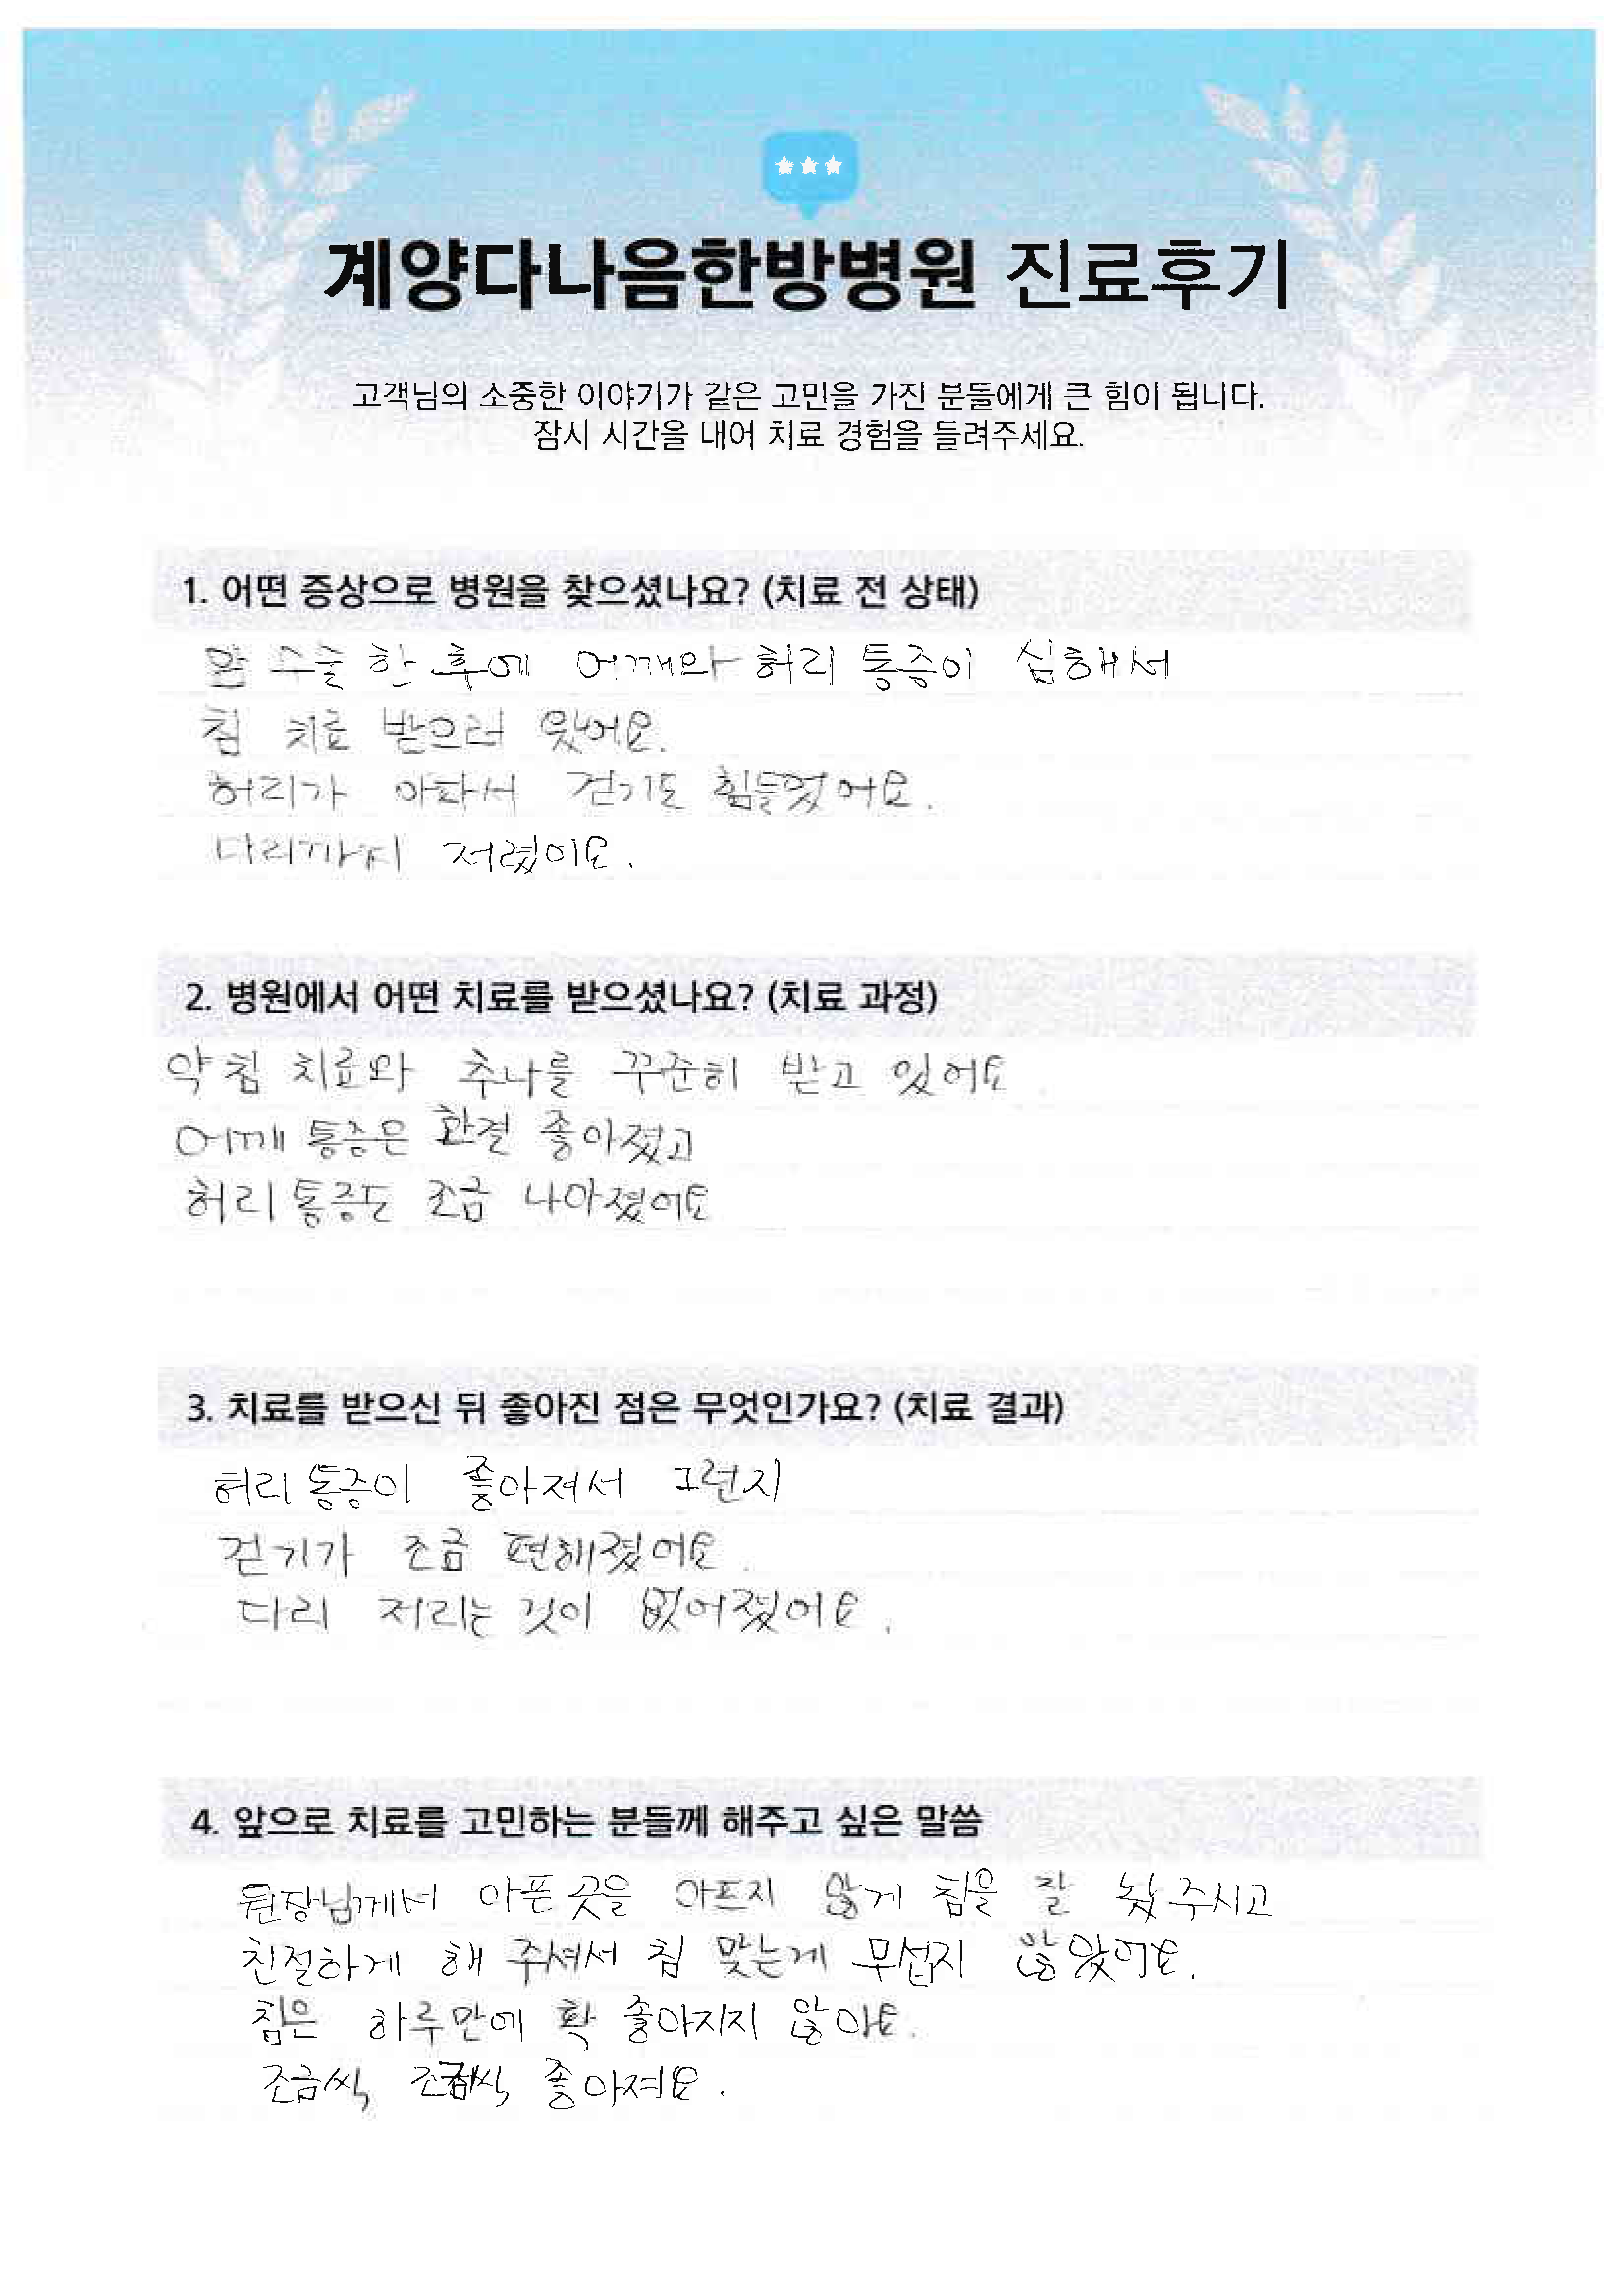 계양다나음한방병원 진료후기
고객님의 소중한 이야기가 같은 고민을 가진 분들에게 큰 힘이 됩니다.
잠시 시간을 내어 치료 경험을 들려주세요.
1. 어떤 증상으로 병원을 찾으셨나요? (치료 전 상태)
암 수술 한 후에 어깨와 허리 통증이 심해서
침 치료 받으러 왔어요.
허리가 아파서 걷기도 힘들었어요.
다리까지 저렸어요.
2. 병원에서 어떤 치료를 받으셨나요? (치료 과정)
약침 치료와 추나를 꾸준히 받고 있어요
어깨 통증은 한결 좋아졌고
허리 통증도 조금 나아졌어요
3. 치료를 받으신 뒤 좋아진 점은 무엇인가요? (치료 결과)
허리 통증이 좋아져서 그런지
걷기가 조금 편해졌어요.
다리 저리는 것이 없어졌어요.
4. 앞으로 치료를 고민하는 분들께 해주고 싶은 말씀
원장님께서 아픈 곳을 아프지 않게 침을 잘 놔 주시고
친절하게 해 주셔서 침 맞는게 무섭지 않았어요.
침은 하루만에 확 좋아지지 않아요.
조금씩, 조금씩 좋아져요.